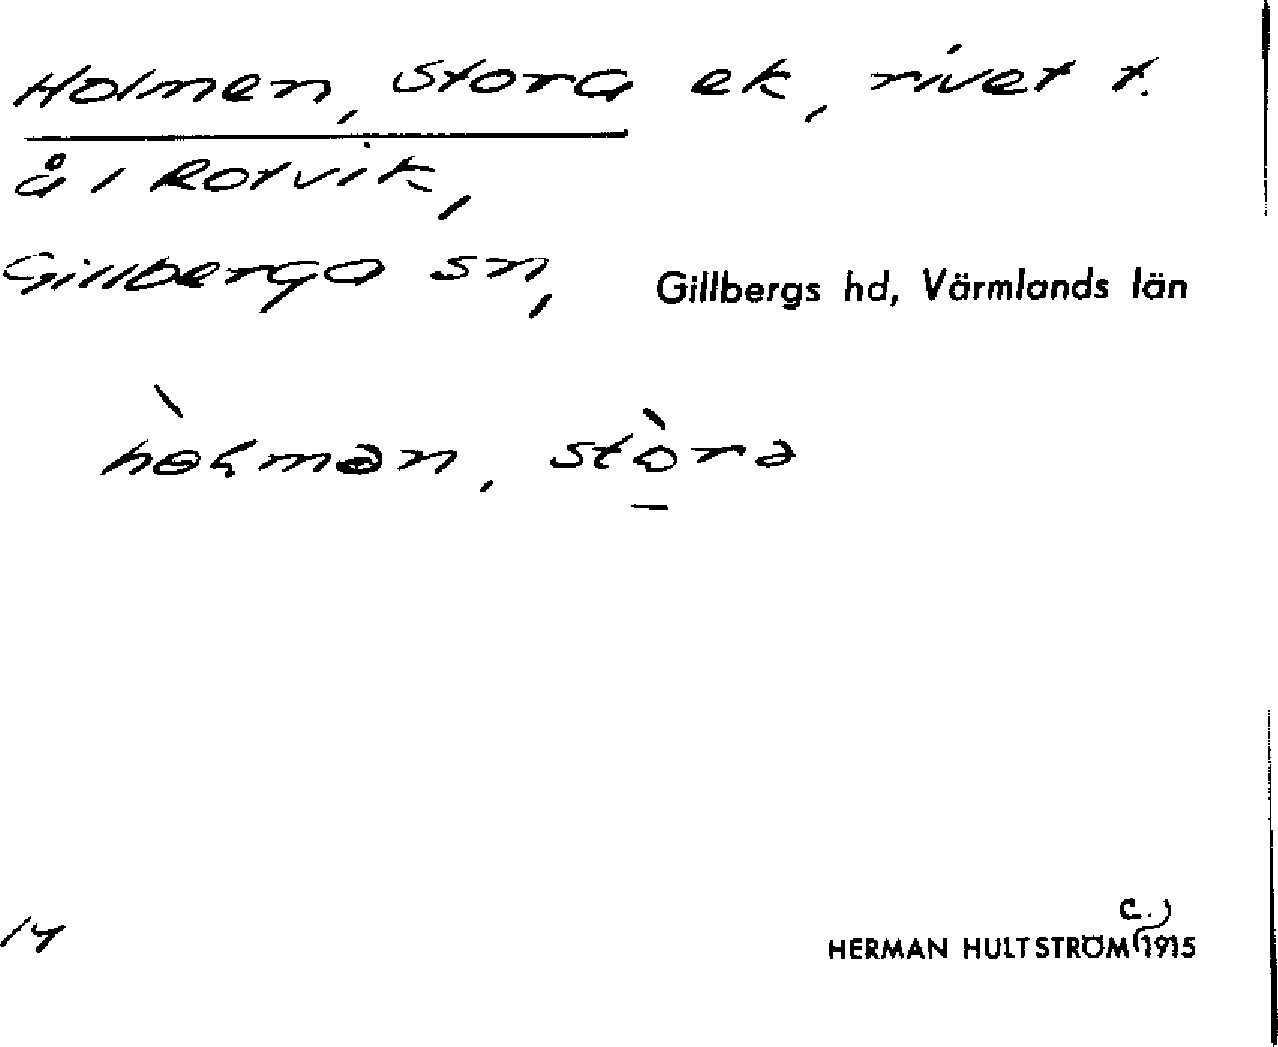 Holmen, Stora ek, rivet t.
å i Rotvik,
Gillberga sn, Gillbergs hd, Värmlands län
stòra
14
c.
HERMAN HULTSTRÖM 1915